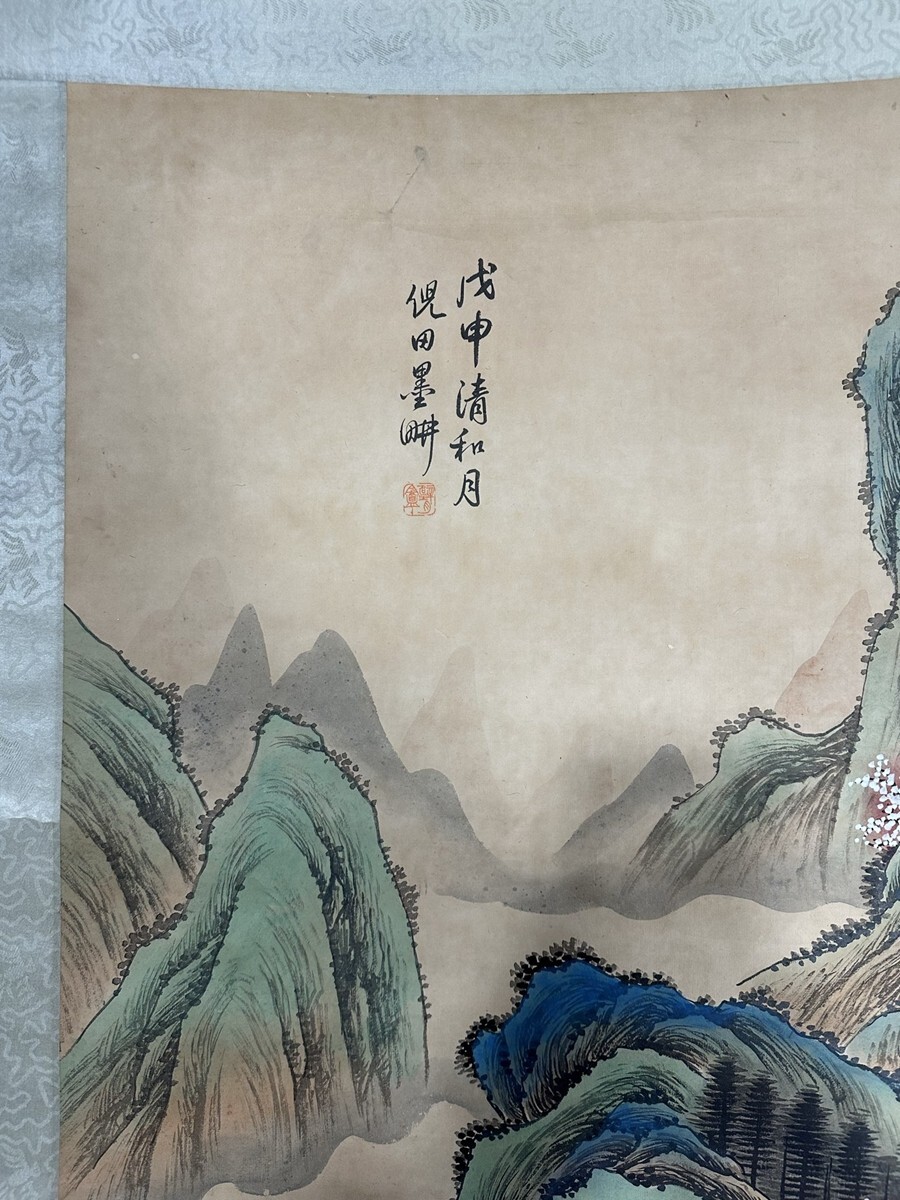 戊申清和月
倪田墨畊